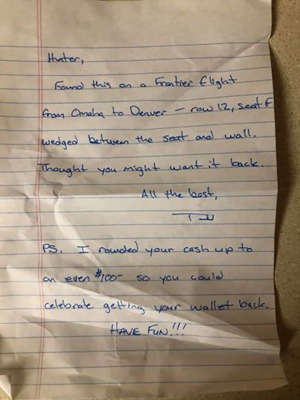 Hunter,
Found this on a Frontier flight
from Omaha to Denver — row 12, seat F
wedged between the seat and wall.
Thought you might want it back.
All the best,
PS. I rounded your cash up to
an even $100- so you could
celebrate getting your wallet back.
HAVE FUN!!!